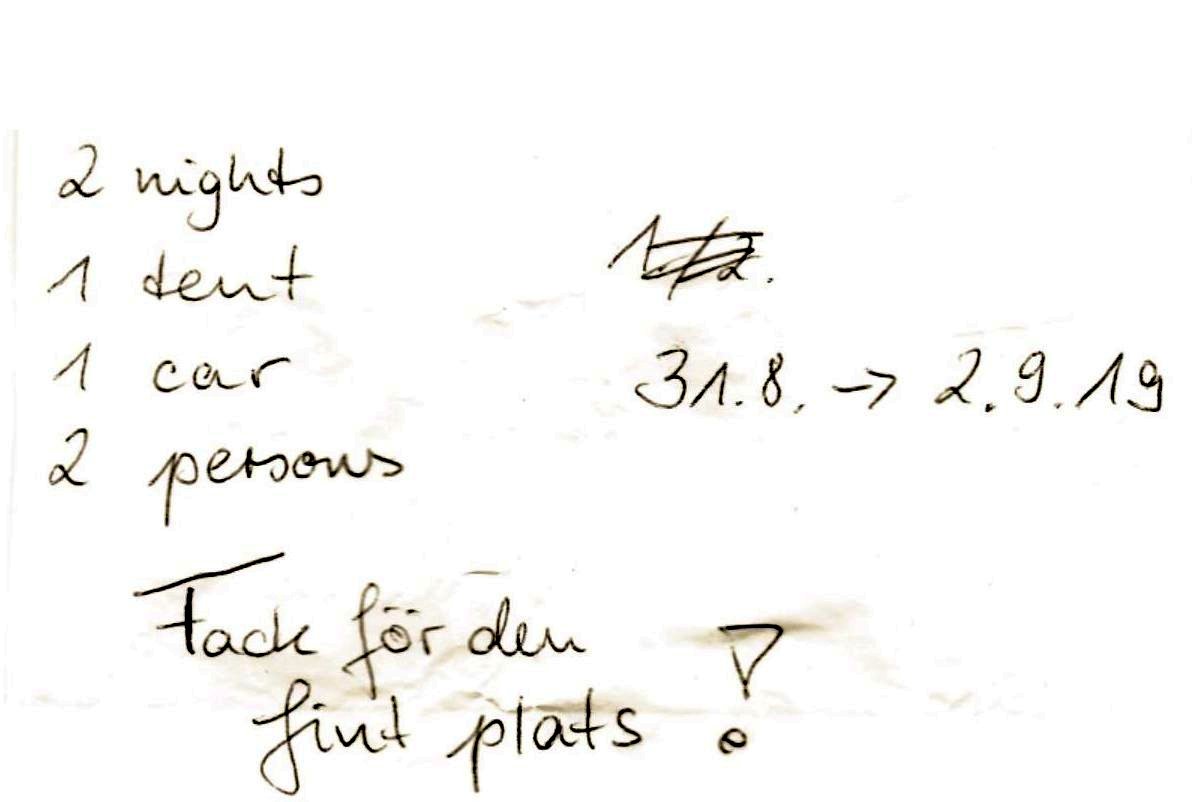 2 nights
1 tent
1./2.
1 car
31.8. → 2.9.19
2 persons
Tack för den
fint plats !